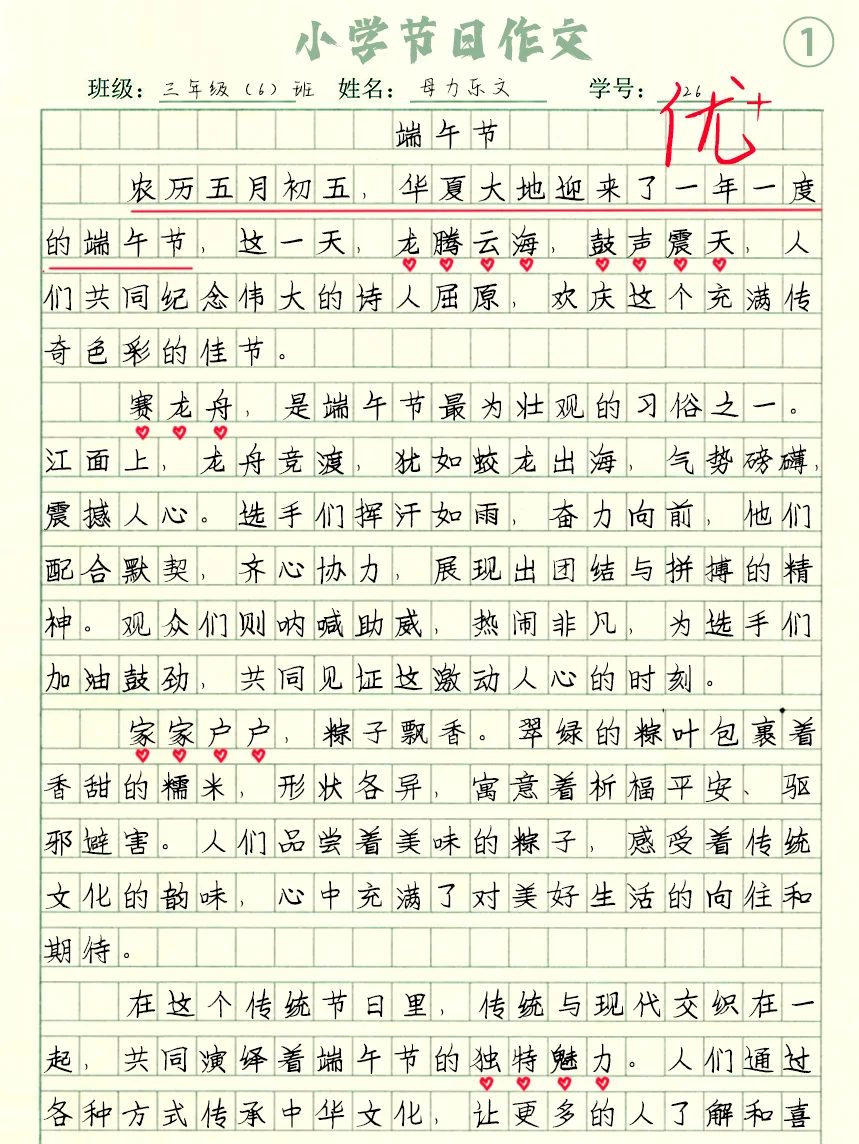 小学节日作文
1
班级：三年级（6）班 姓名：母力乐文 学号：26
优+
端午节
农历五月初五，华夏大地迎来了一年一度
的端午节，这一天，龙腾云海，鼓声震天，人
们共同纪念伟大的诗人屈原，欢庆这个充满传
奇色彩的佳节。
赛龙舟，是端午节最为壮观的习俗之一。
江面上，龙舟竞渡，犹如蛟龙出海，气势磅礴，
震撼人心。选手们挥汗如雨，奋力向前，他们
配合默契，齐心协力，展现出团结与拼搏的精
神。观众们则呐喊助威，热闹非凡，为选手们
加油鼓劲，共同见证这激动人心的时刻。
家家户户，粽子飘香。翠绿的粽叶包裹着
香甜的糯米，形状各异，寓意着祈福平安、驱
邪避害。人们品尝着美味的粽子，感受着传统
文化的韵味，心中充满了对美好生活的向往和
期待。
在这个传统节日里，传统与现代交织在一
起，共同演绎着端午节的独特魅力。人们通过
各种方式传承中华文化，让更多的人了解和喜